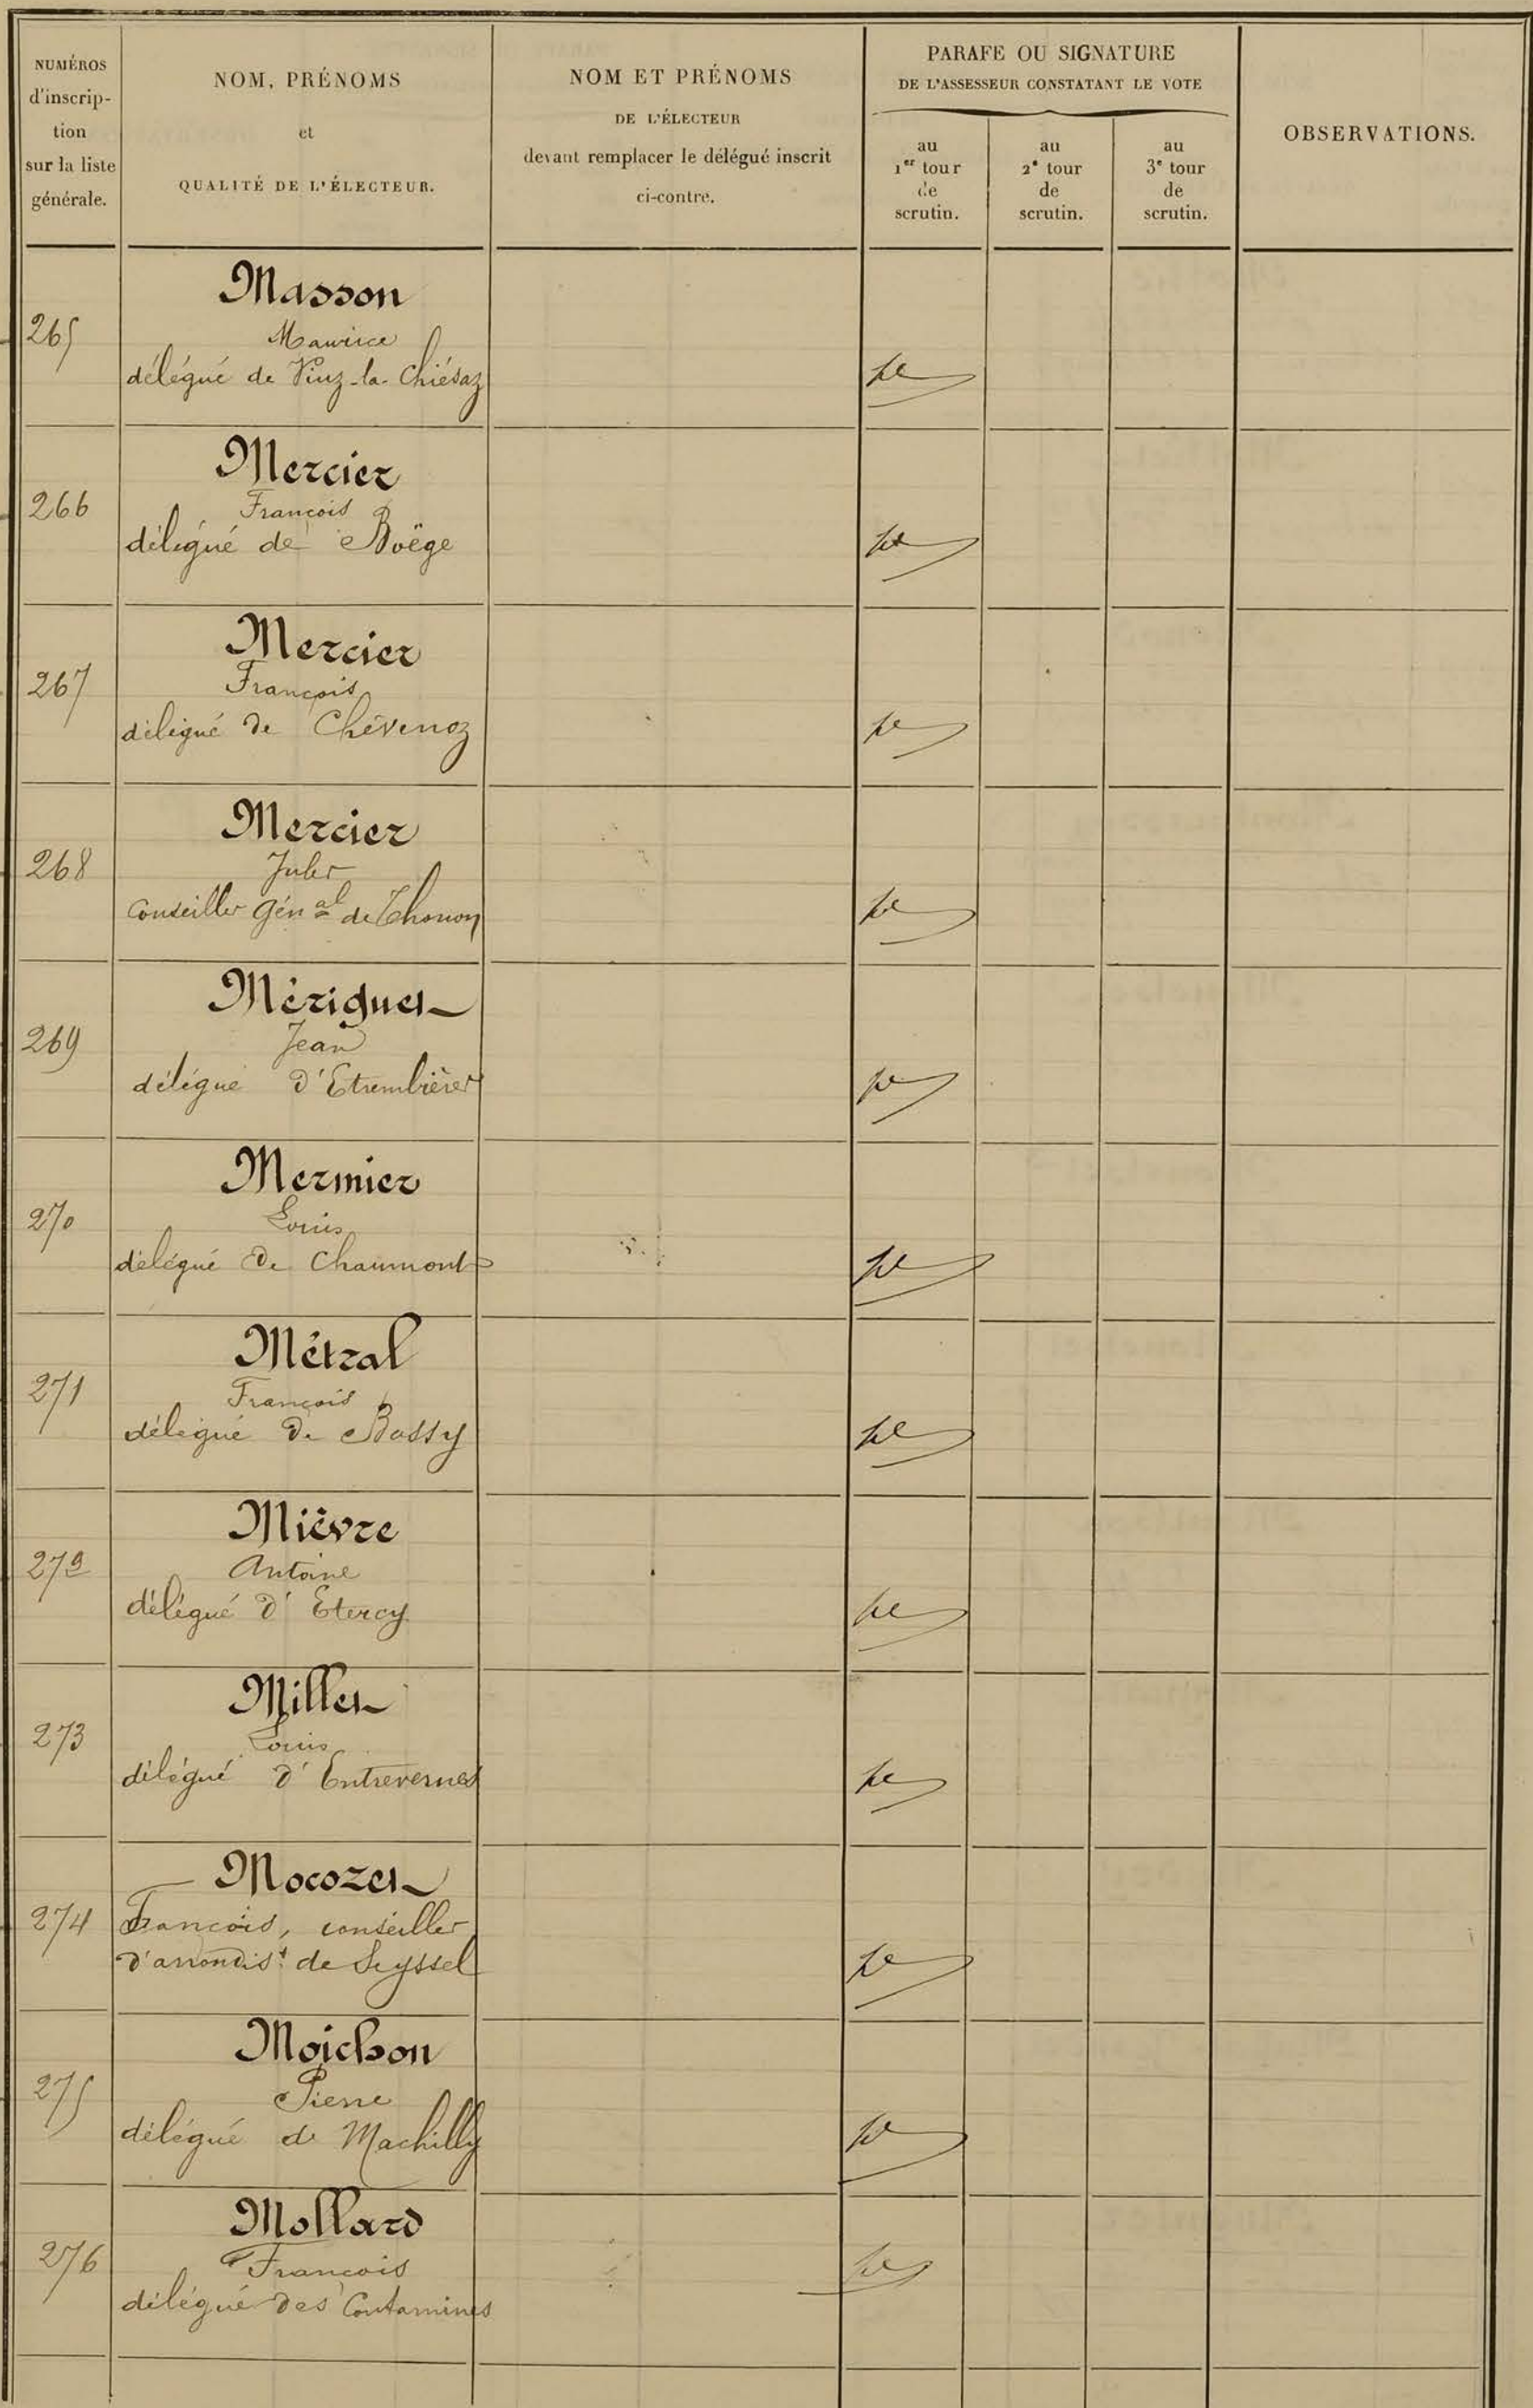 NUMÉROS
d'inscrip-
tion
sur la liste
générale.
NOM, PRÉNOMS
et
QUALITÉ DE L'ÉLECTEUR.
NOM ET PRÉNOMS
DE L'ÉLECTEUR
devant remplacer le délégué inscrit
ci-contre.
PARAFE OU SIGNATURE
DE L'ASSESSEUR CONSTATANT LE VOTE
au
1er tour
de
scrutin.
au
2e tour
de
scrutin.
au
3e tour
de
scrutin.
OBSERVATIONS.
Masson
265
Maurice
délégué de Viuz-la-Chiésaz
Mercier
266
François
délégué de Boëge
Mercier
267
François
délégué de Chévenoz
Mercier
268
Jules
Conseiller Génal de Thonon
Mériguet
269
Jean
délégué d'Etrembières
Mermier
270
Louis
délégué de Chaumont
Métral
271
François
délégué de Bassy
Mièvre
272
Antoine
délégué d'Etercy
Millet
273
Louis
délégué d'Entrevernes
Mocozet
274
François, conseiller
d'arrondist de Seyssel
Moichon
275
Pierre
délégué de Machilly
Mollard
276
François
délégué des Contamines